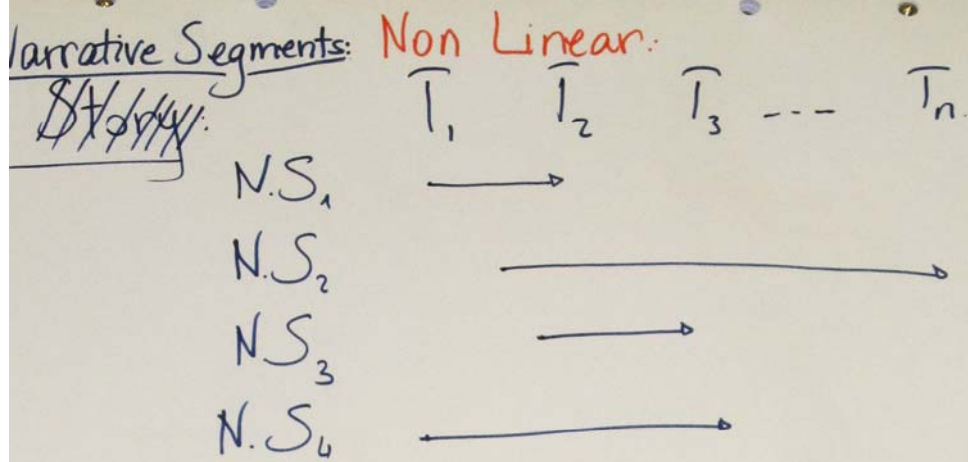 arrative Segments: Non Linear.
T1 T2 T3 ---- Tn.
N.S1
N.S2
N S3
N.S4